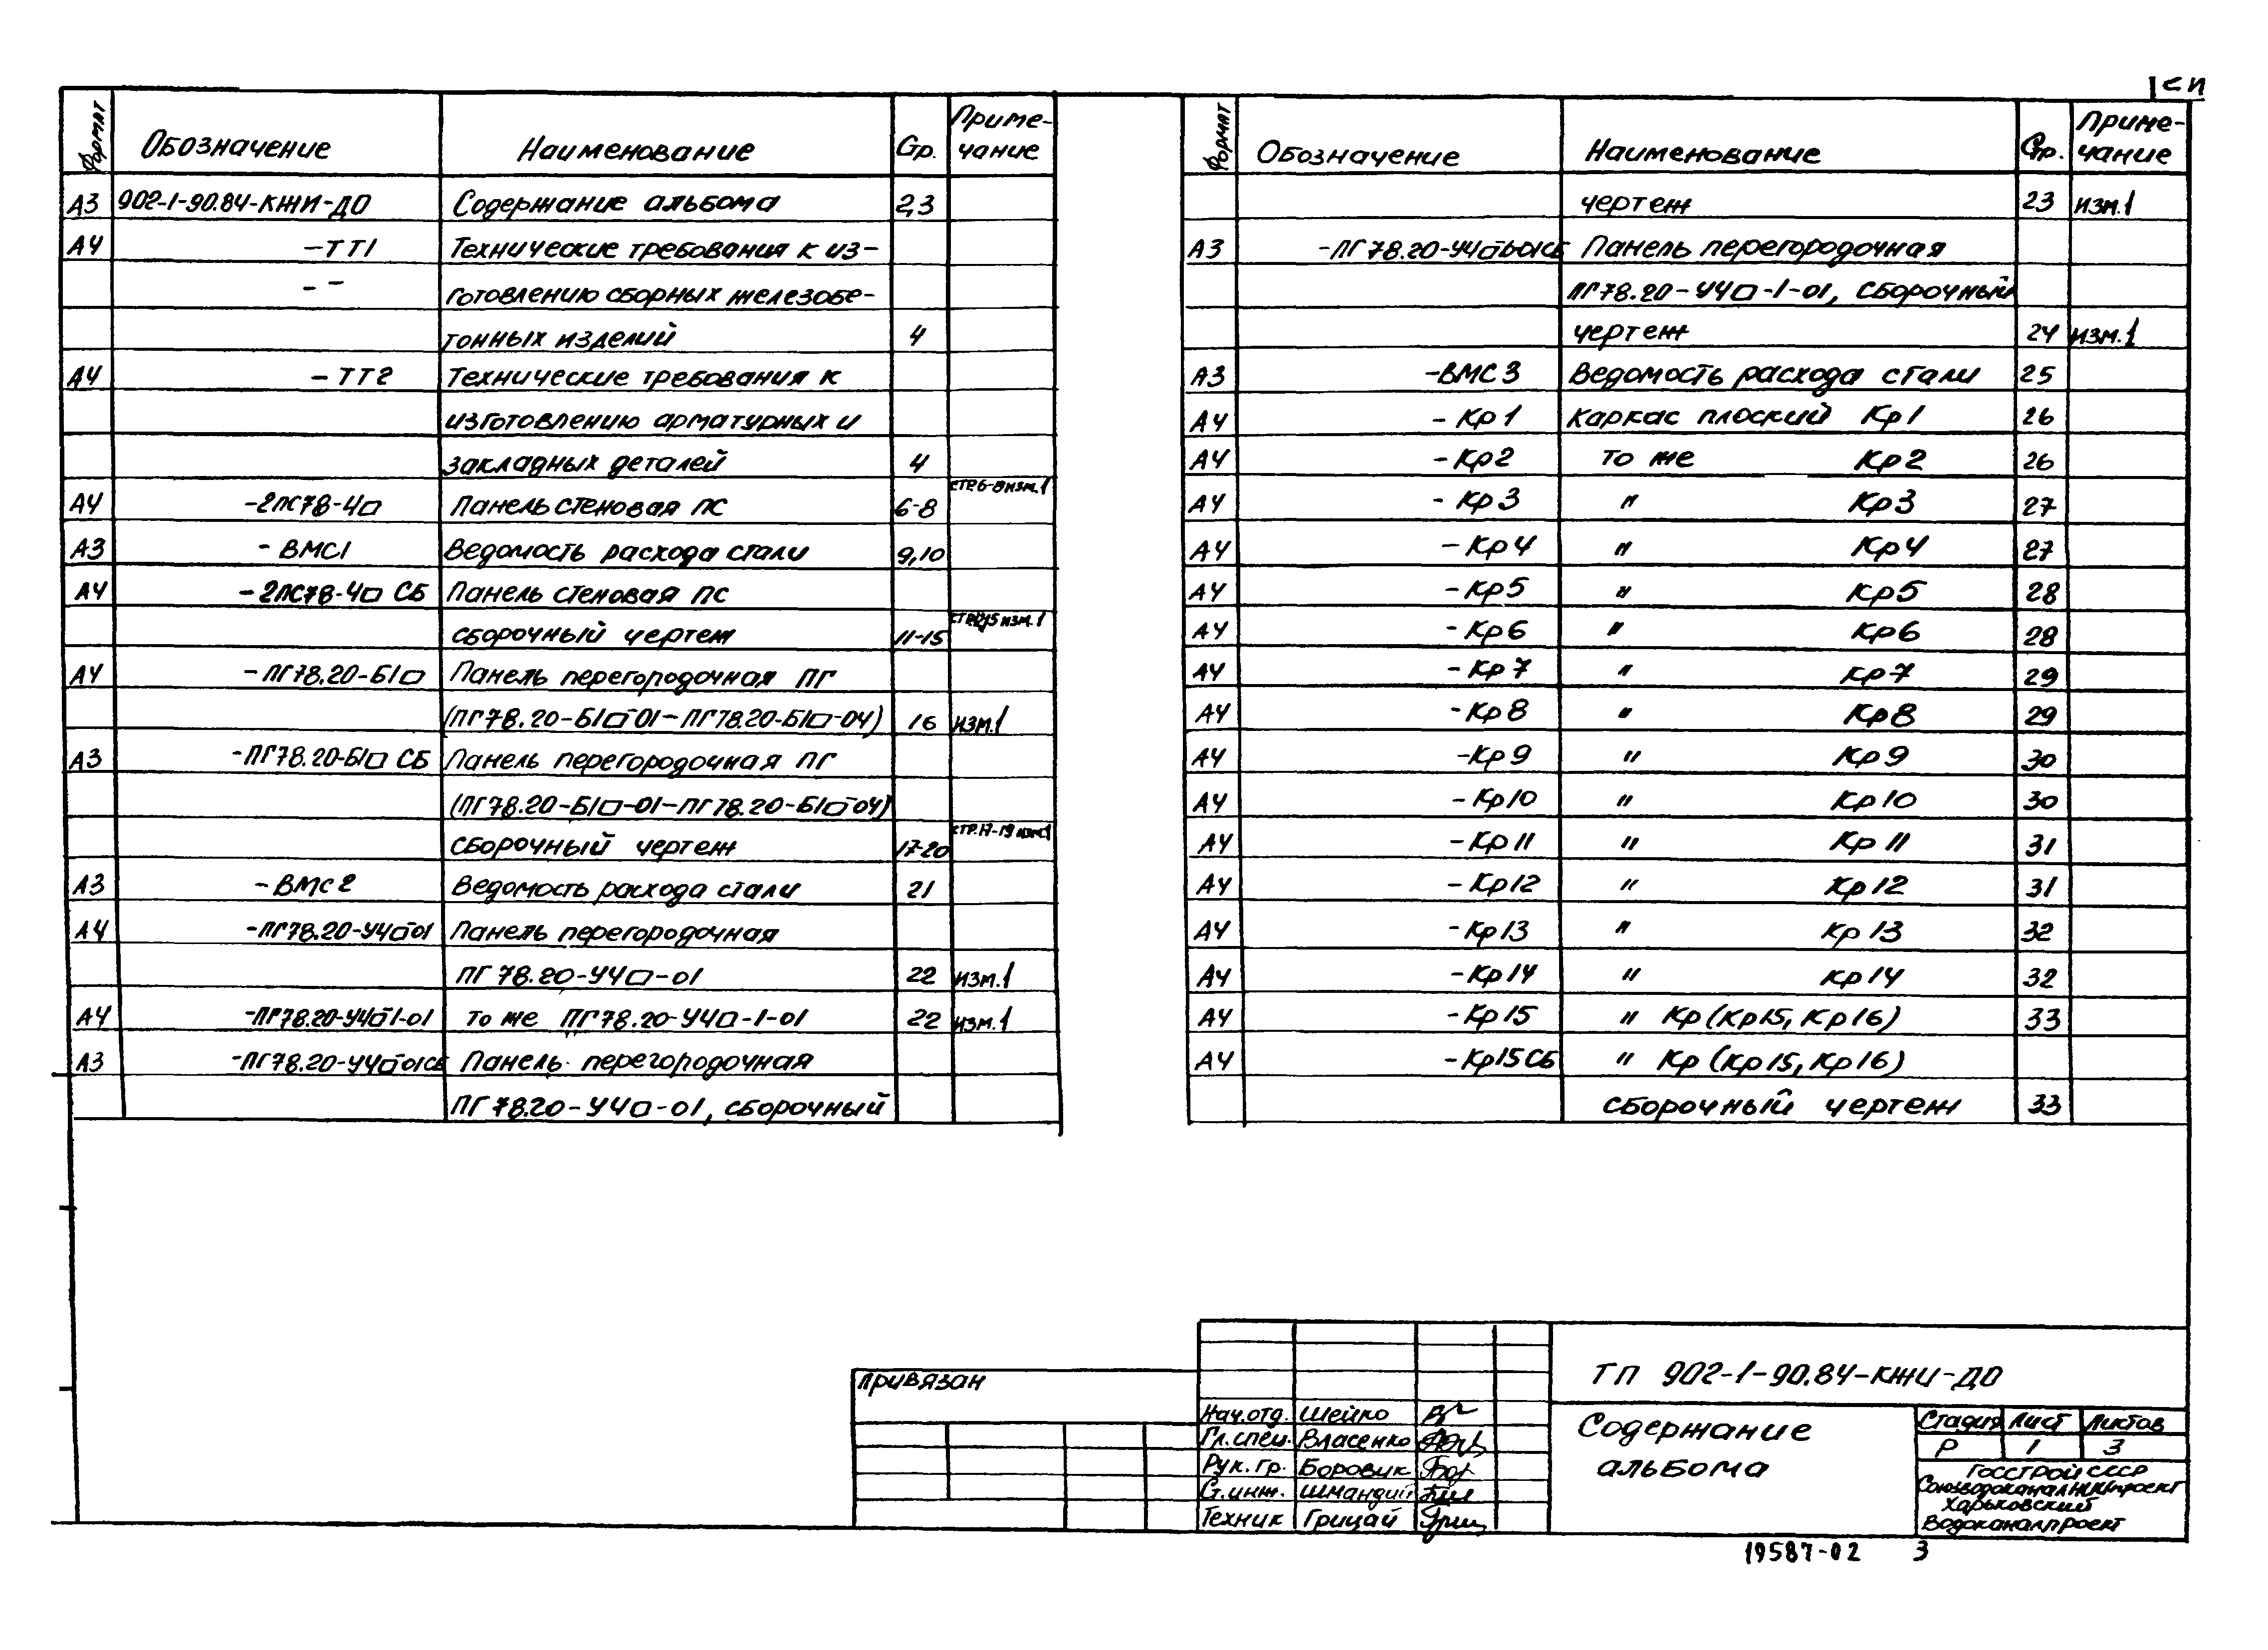 Формат Обозначение Наименование Стр. Приме-чание
А3 902-1-90.84-КЖИ-ДО Содержание альбома 2,3
А4 -ТТ1 Технические требования к из-
готовлению сборных железобе-
тонных изделий 4
А4 -ТТ2 Технические требования к
изготовлению арматурных и
закладных деталей 4
А4 -2ПС78-4□ Панель стеновая ПС 6-8 стр.6-8 изм.1
А3 -ВМС1 Ведомость расхода стали 9,10
А4 -2ПС78-4□ СБ Панель стеновая ПС
сборочный чертеж 11-15 изм.1
А4 -ПГ78.20-Б1□ Панель перегородочная ПГ
(ПГ78.20-Б1□-01-ПГ78.20-Б1□-04) 16 изм.1
А3 -ПГ78.20-Б1□ СБ Панель перегородочная ПГ
(ПГ78.20-Б1□-01-ПГ78.20-Б1□-04)
сборочный чертеж 17-20 стр.17-19 изм.1
А3 -ВМС2 Ведомость расхода стали 21
А4 -ПГ78.20-У4□-01 Панель перегородочная
ПГ78.20-У4□-01 22 изм.1
А4 -ПГ78.20-У4□-1-01 то же ПГ78.20-У4□-1-01 22 изм.1
А3 -ПГ78.20-У4□-01СБ Панель перегородочная
ПГ78.20-У4□-01, сборочный
1 С И
Формат Обозначение Наименование Стр. Приме-чание
чертеж 23 изм.1
А3 -ПГ78.20-У4□-1-01СБ Панель перегородочная
ПГ78.20-У4□-1-01, сборочный
чертеж 24 изм.1
А3 -ВМС3 Ведомость расхода стали 25
А4 -Кр1 Каркас плоский Кр1 26
А4 -Кр2 то же Кр2 26
А4 -Кр3 " Кр3 27
А4 -Кр4 " Кр4 27
А4 -Кр5 " Кр5 28
А4 -Кр6 " Кр6 28
А4 -Кр7 " Кр7 29
А4 -Кр8 " Кр8 29
А4 -Кр9 " Кр9 30
А4 -Кр10 " Кр10 30
А4 -Кр11 " Кр11 31
А4 -Кр12 " Кр12 31
А4 -Кр13 " Кр13 32
А4 -Кр14 " Кр14 32
А4 -Кр15 " Кр (Кр15, Кр16) 33
А4 -Кр15СБ " Кр (Кр15, Кр16)
сборочный чертеж 33
Привязан
Нач.отд. Шейко
Гл.спец. Власенко
Рук.гр. Боровик
Ст.инж. Шмандий
Техник Грицай
ТП 902-1-90.84-КЖИ-ДО
Содержание
альбома
Стадия Лист Листов
Р 1 3
Госстрой СССР
СоюзводоканалНИИпроект
Харьковский
Водоканалпроект
19587-02 3